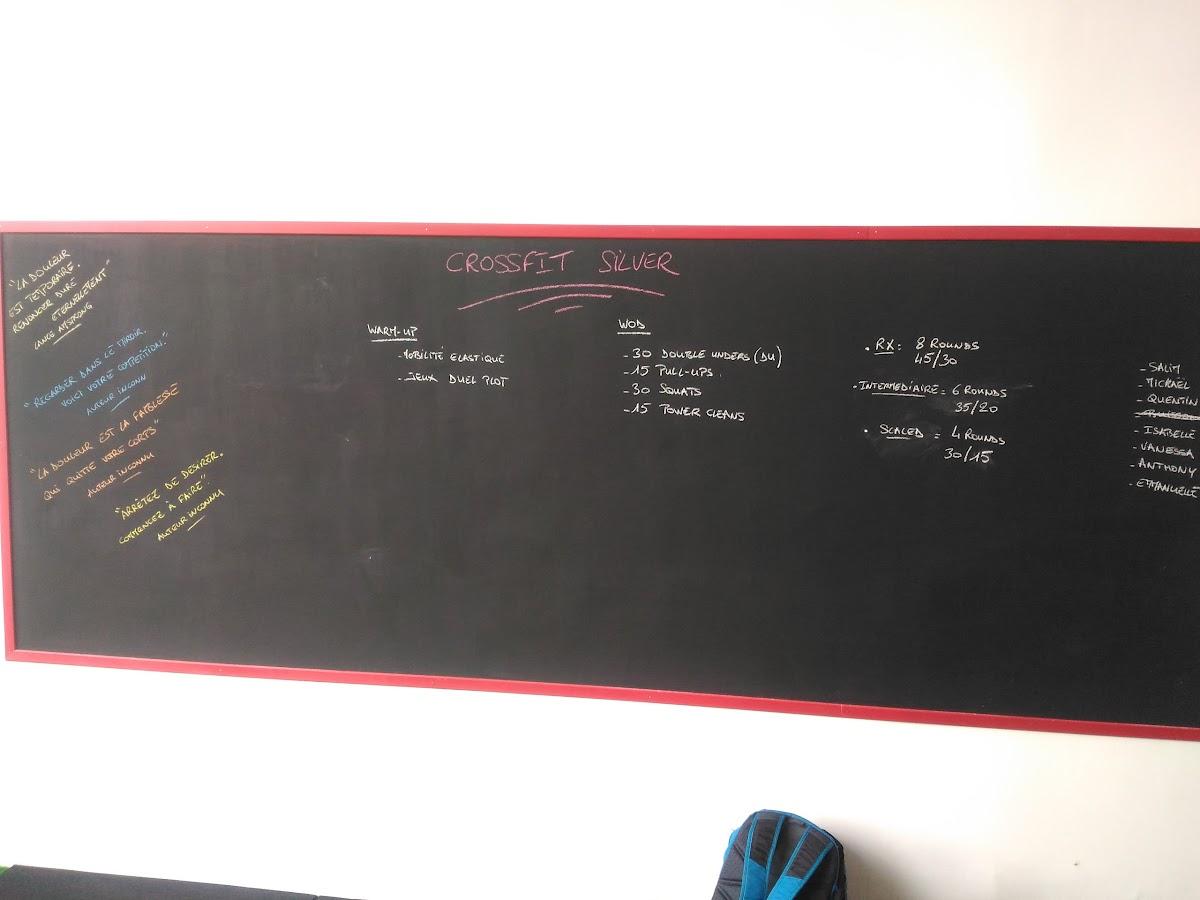 CROSSFIT SILVER
"LA DOULEUR
EST TEMPORAIRE.
RENONCER DURE
ETERNELLEMENT"
LANCE AMSTRONG
"REGARDER DANS LE MIROIR.
VOICI VOTRE COMPETITION."
AUTEUR INCONN
"LA DOULEUR EST LA FAIBLESSE
QUI QUITTE VOTRE CORPS"
AUTEUR INCONNU
"ARRÊTEZ DE DESIRER.
COMMENCEZ À FAIRE"
AUTEUR INCONNU
WARM-UP
- MOBILITÉ ELASTIQUE
- JEUX DUEL PLOT
WOD
- 30 DOUBLE UNDERS (DU)
- 15 PULL-UPS.
- 30 SQUATS
- 15 POWER CLEANS
• RX : 8 ROUNDS
45/30
• INTERMEDIAIRE = 6 ROUNDS
35/20
• SCALED = 4 ROUNDS
30/15
- SALIM
- MICKAËL
- QUENTIN
- ISABELLE
- VANESSA
- ANTHONY
- EMMANUELLE